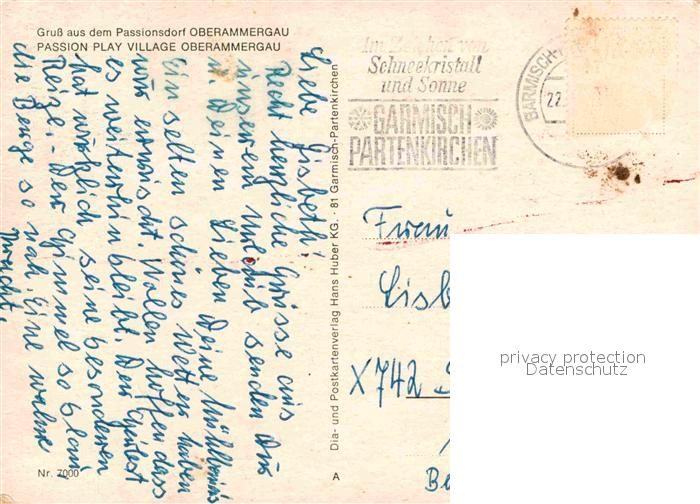 Gruß aus dem Passionsdorf OBERAMMERGAU
PASSION PLAY VILLAGE OBERAMMERGAU
Liebe Lisbeth!
Recht herzliche Grüsse aus
unserem Urlaub senden Dir
u. Deinen Lieben Deine
Ein selten schönes Wetter haben
wir erwischt Wollen hoffen dass
es weiterhin bleibt. Der Herbst
hat wirklich seine besonderen
Reize. - Der Himmel so blau
die Berge so nah. Eine wahre
Pracht.
Nr. 7000
A
Dia- und Postkartenverlag Hans Huber KG. · 81 Garmisch-Partenkirchen
Im Zeichen von
Schneekristall
und Sonne
GARMISCH
PARTENKIRCHEN
GARMISCH-
22.
Frau
Lisb
X742
privacy protection
Datenschutz